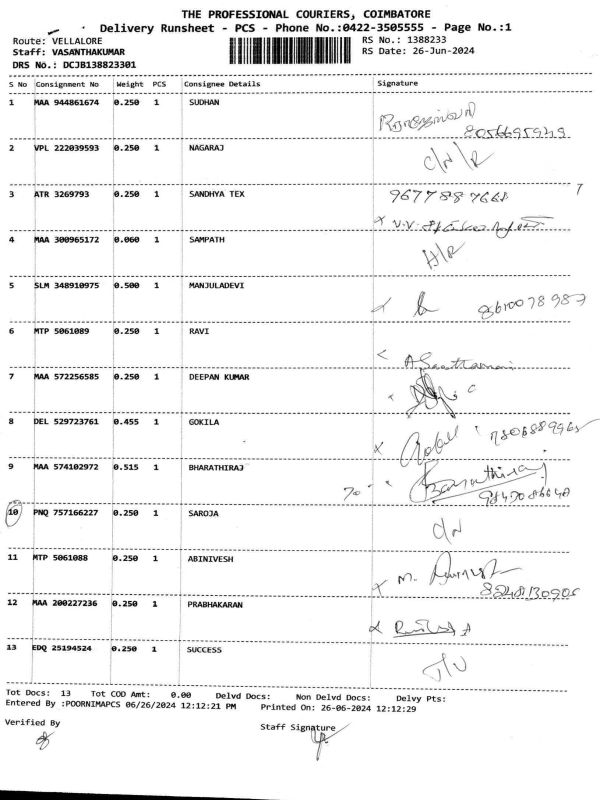 THE PROFESSIONAL COURIERS, COIMBATORE
Delivery Runsheet - PCS - Phone No.:0422-3505555 - Page No.:1
Route: VELLALORE RS No.: 1388233
Staff: VASANTHAKUMAR RS Date: 26-Jun-2024
DRS No.: DCJB138823301
S No Consignment No Weight PCS Consignee Details Signature
1 MAA 944861674 0.250 1 SUDHAN
2 VPL 222039593 0.250 1 NAGARAJ
3 ATR 3269793 0.250 1 SANDHYA TEX
4 MAA 300965172 0.060 1 SAMPATH
5 SLM 348910975 0.500 1 MANJULADEVI 8610078987
6 MTP 5061089 0.250 1 RAVI
7 MAA 572256585 0.250 1 DEEPAN KUMAR
8 DEL 529723761 0.455 1 GOKILA
9 MAA 574102972 0.515 1 BHARATHIRAJ
10 PNQ 757166227 0.250 1 SAROJA
11 MTP 5061088 0.250 1 ABINIVESH
12 MAA 200227236 0.250 1 PRABHAKARAN
13 EDQ 25194524 0.250 1 SUCCESS
Tot Docs: 13 Tot COD Amt: 0.00 Delvd Docs: Non Delvd Docs: Delvy Pts:
Entered By :POORNIMAPCS 06/26/2024 12:12:21 PM Printed On: 26-06-2024 12:12:29
Verified By Staff Signature